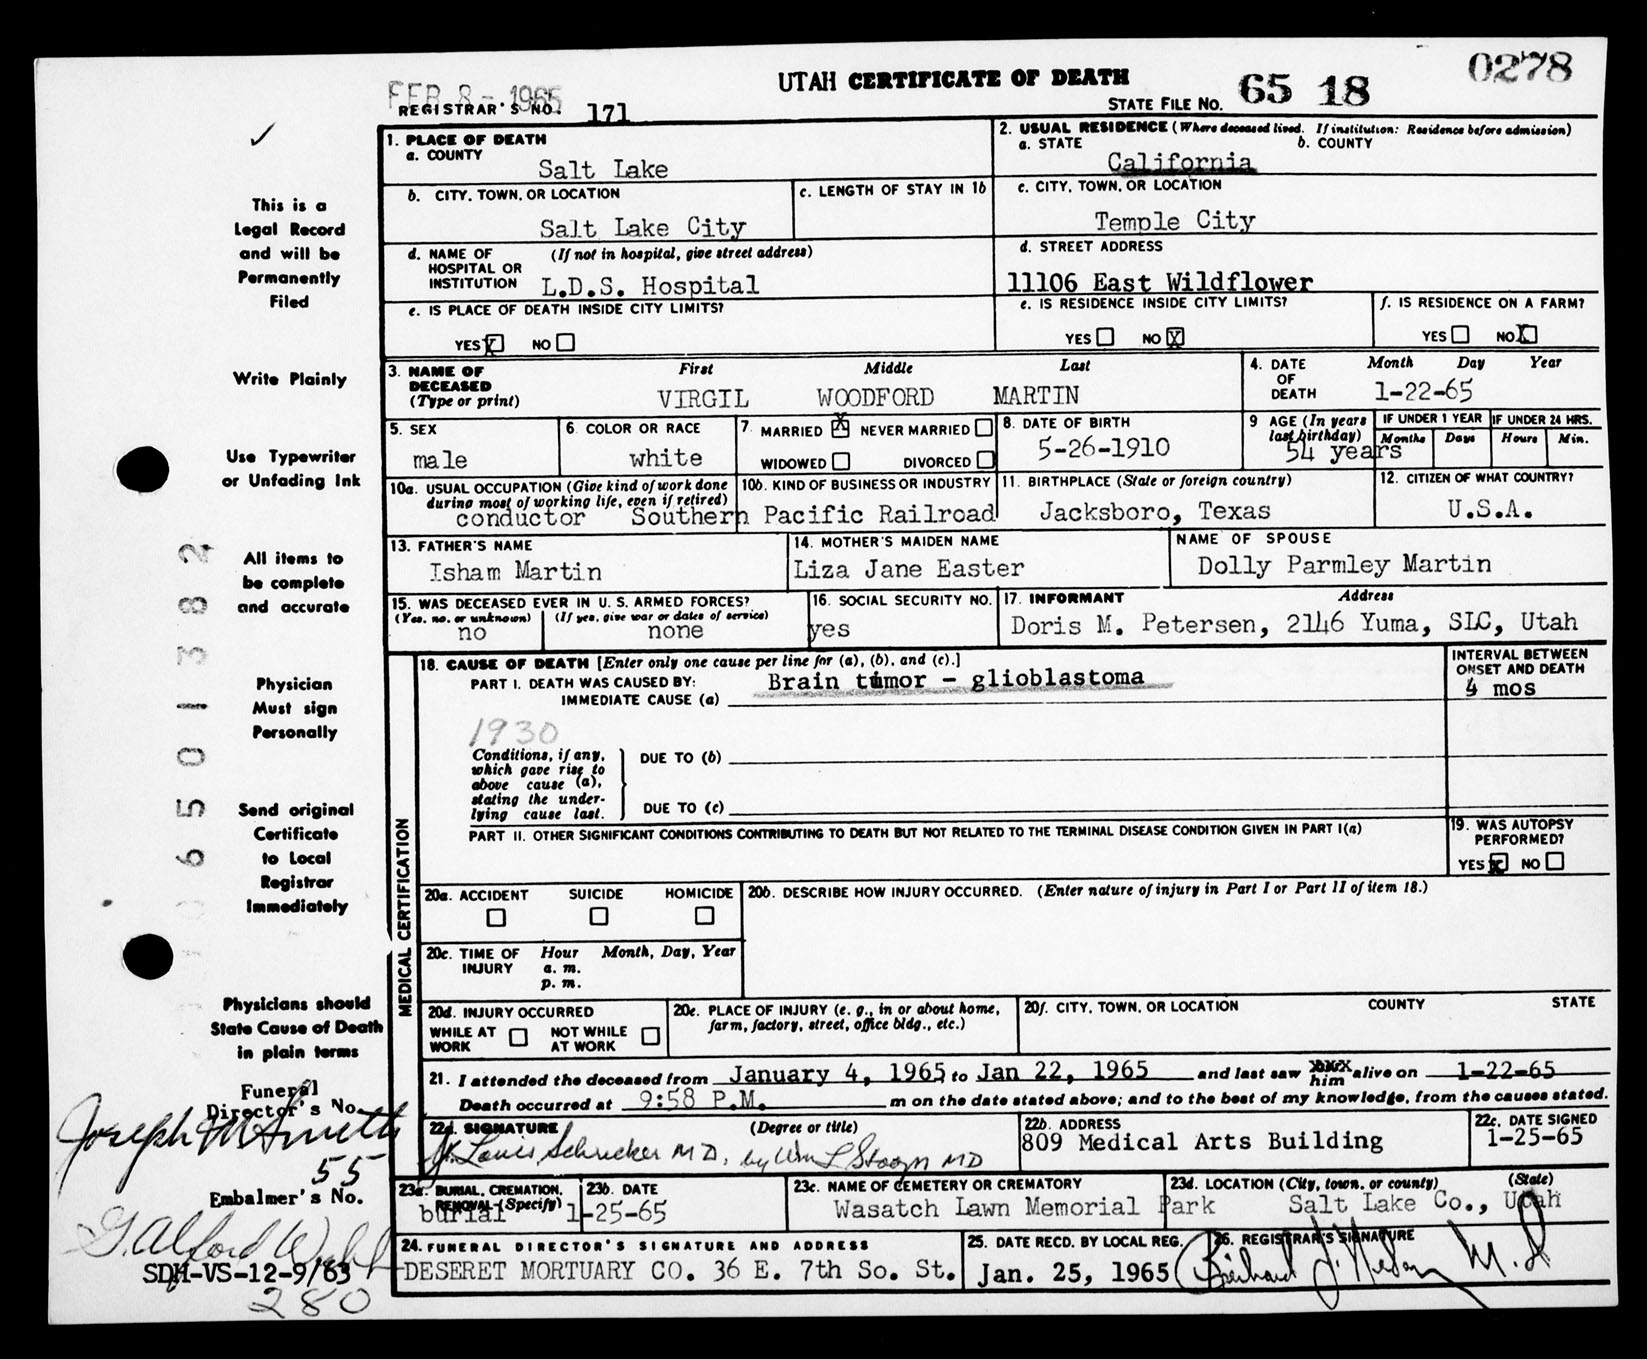 FEB 8 - 1965
UTAH CERTIFICATE OF DEATH
0278
REGISTRAR'S NO. 171
STATE FILE NO. 65 18
1. PLACE OF DEATH
a. COUNTY
Salt Lake
2. USUAL RESIDENCE (Where deceased lived. If institution: Residence before admission)
a. STATE b. COUNTY
California
b. CITY, TOWN, OR LOCATION
Salt Lake City
c. LENGTH OF STAY IN 1b
c. CITY, TOWN, OR LOCATION
Temple City
d. NAME OF HOSPITAL OR INSTITUTION (If not in hospital, give street address)
L.D.S. Hospital
d. STREET ADDRESS
11106 East Wildflower
e. IS PLACE OF DEATH INSIDE CITY LIMITS?
YES X NO
e. IS RESIDENCE INSIDE CITY LIMITS?
YES NO X
f. IS RESIDENCE ON A FARM?
YES NO X
3. NAME OF DECEASED (Type or print)
First Middle Last
VIRGIL WOODFORD MARTIN
4. DATE OF DEATH Month Day Year
1-22-65
5. SEX
male
6. COLOR OR RACE
white
7. MARRIED X NEVER MARRIED
WIDOWED DIVORCED
8. DATE OF BIRTH
5-26-1910
9 AGE (In years last birthday)
54 years
IF UNDER 1 YEAR IF UNDER 24 HRS.
Months Days Hours Min.
10a. USUAL OCCUPATION (Give kind of work done during most of working life, even if retired)
conductor
10b. KIND OF BUSINESS OR INDUSTRY
Southern Pacific Railroad
11. BIRTHPLACE (State or foreign country)
Jacksboro, Texas
12. CITIZEN OF WHAT COUNTRY?
U.S.A.
13. FATHER'S NAME
Isham Martin
14. MOTHER'S MAIDEN NAME
Liza Jane Easter
NAME OF SPOUSE
Dolly Parmley Martin
15. WAS DECEASED EVER IN U. S. ARMED FORCES?
(Yes, no, or unknown) (If yes, give war or dates of service)
no none
16. SOCIAL SECURITY NO.
yes
17. INFORMANT Address
Doris M. Petersen, 2146 Yuma, SLC, Utah
MEDICAL CERTIFICATION
18. CAUSE OF DEATH [Enter only one cause per line for (a), (b), and (c).]
PART I. DEATH WAS CAUSED BY:
IMMEDIATE CAUSE (a) Brain tumor - glioblastoma
INTERVAL BETWEEN ONSET AND DEATH
4 mos
1930
Conditions, if any, which gave rise to above cause (a), stating the underlying cause last.
DUE TO (b)
DUE TO (c)
PART II. OTHER SIGNIFICANT CONDITIONS CONTRIBUTING TO DEATH BUT NOT RELATED TO THE TERMINAL DISEASE CONDITION GIVEN IN PART I(a)
19. WAS AUTOPSY PERFORMED?
YES X NO
20a. ACCIDENT SUICIDE HOMICIDE
20b. DESCRIBE HOW INJURY OCCURRED. (Enter nature of injury in Part I or Part II of item 18.)
20c. TIME OF INJURY Hour Month, Day, Year
a. m.
p. m.
20d. INJURY OCCURRED
WHILE AT WORK NOT WHILE AT WORK
20e. PLACE OF INJURY (e. g., in or about home, farm, factory, street, office bldg., etc.)
20f. CITY, TOWN, OR LOCATION COUNTY STATE
21. I attended the deceased from January 4, 1965 to Jan 22, 1965 and last saw him alive on 1-22-65
Death occurred at 9:58 P.M. m on the date stated above; and to the best of my knowledge, from the causes stated.
22a. SIGNATURE (Degree or title)
Louis Schricker MD, by Wm L Stoops MD
22b. ADDRESS
809 Medical Arts Building
22c. DATE SIGNED
1-25-65
23a. BURIAL, CREMATION, REMOVAL (Specify)
burial
23b. DATE
1-25-65
23c. NAME OF CEMETERY OR CREMATORY
Wasatch Lawn Memorial Park
23d. LOCATION (City, town, or county) (State)
Salt Lake Co., Utah
24. FUNERAL DIRECTOR'S SIGNATURE AND ADDRESS
DESERET MORTUARY CO. 36 E. 7th So. St.
25. DATE RECD. BY LOCAL REG.
Jan. 25, 1965
26. REGISTRAR'S SIGNATURE
M.D
This is a
Legal Record
and will be
Permanently
Filed
Write Plainly
Use Typewriter
or Unfading Ink
All items to
be complete
and accurate
Physician
Must sign
Personally
Send original
Certificate
to Local
Registrar
Immediately
Physicians should
State Cause of Death
in plain terms
Funeral
Director's No.
Joseph M Smith
55
Embalmer's No.
G. Alford
SDH-VS-12-9/63
280
06501382